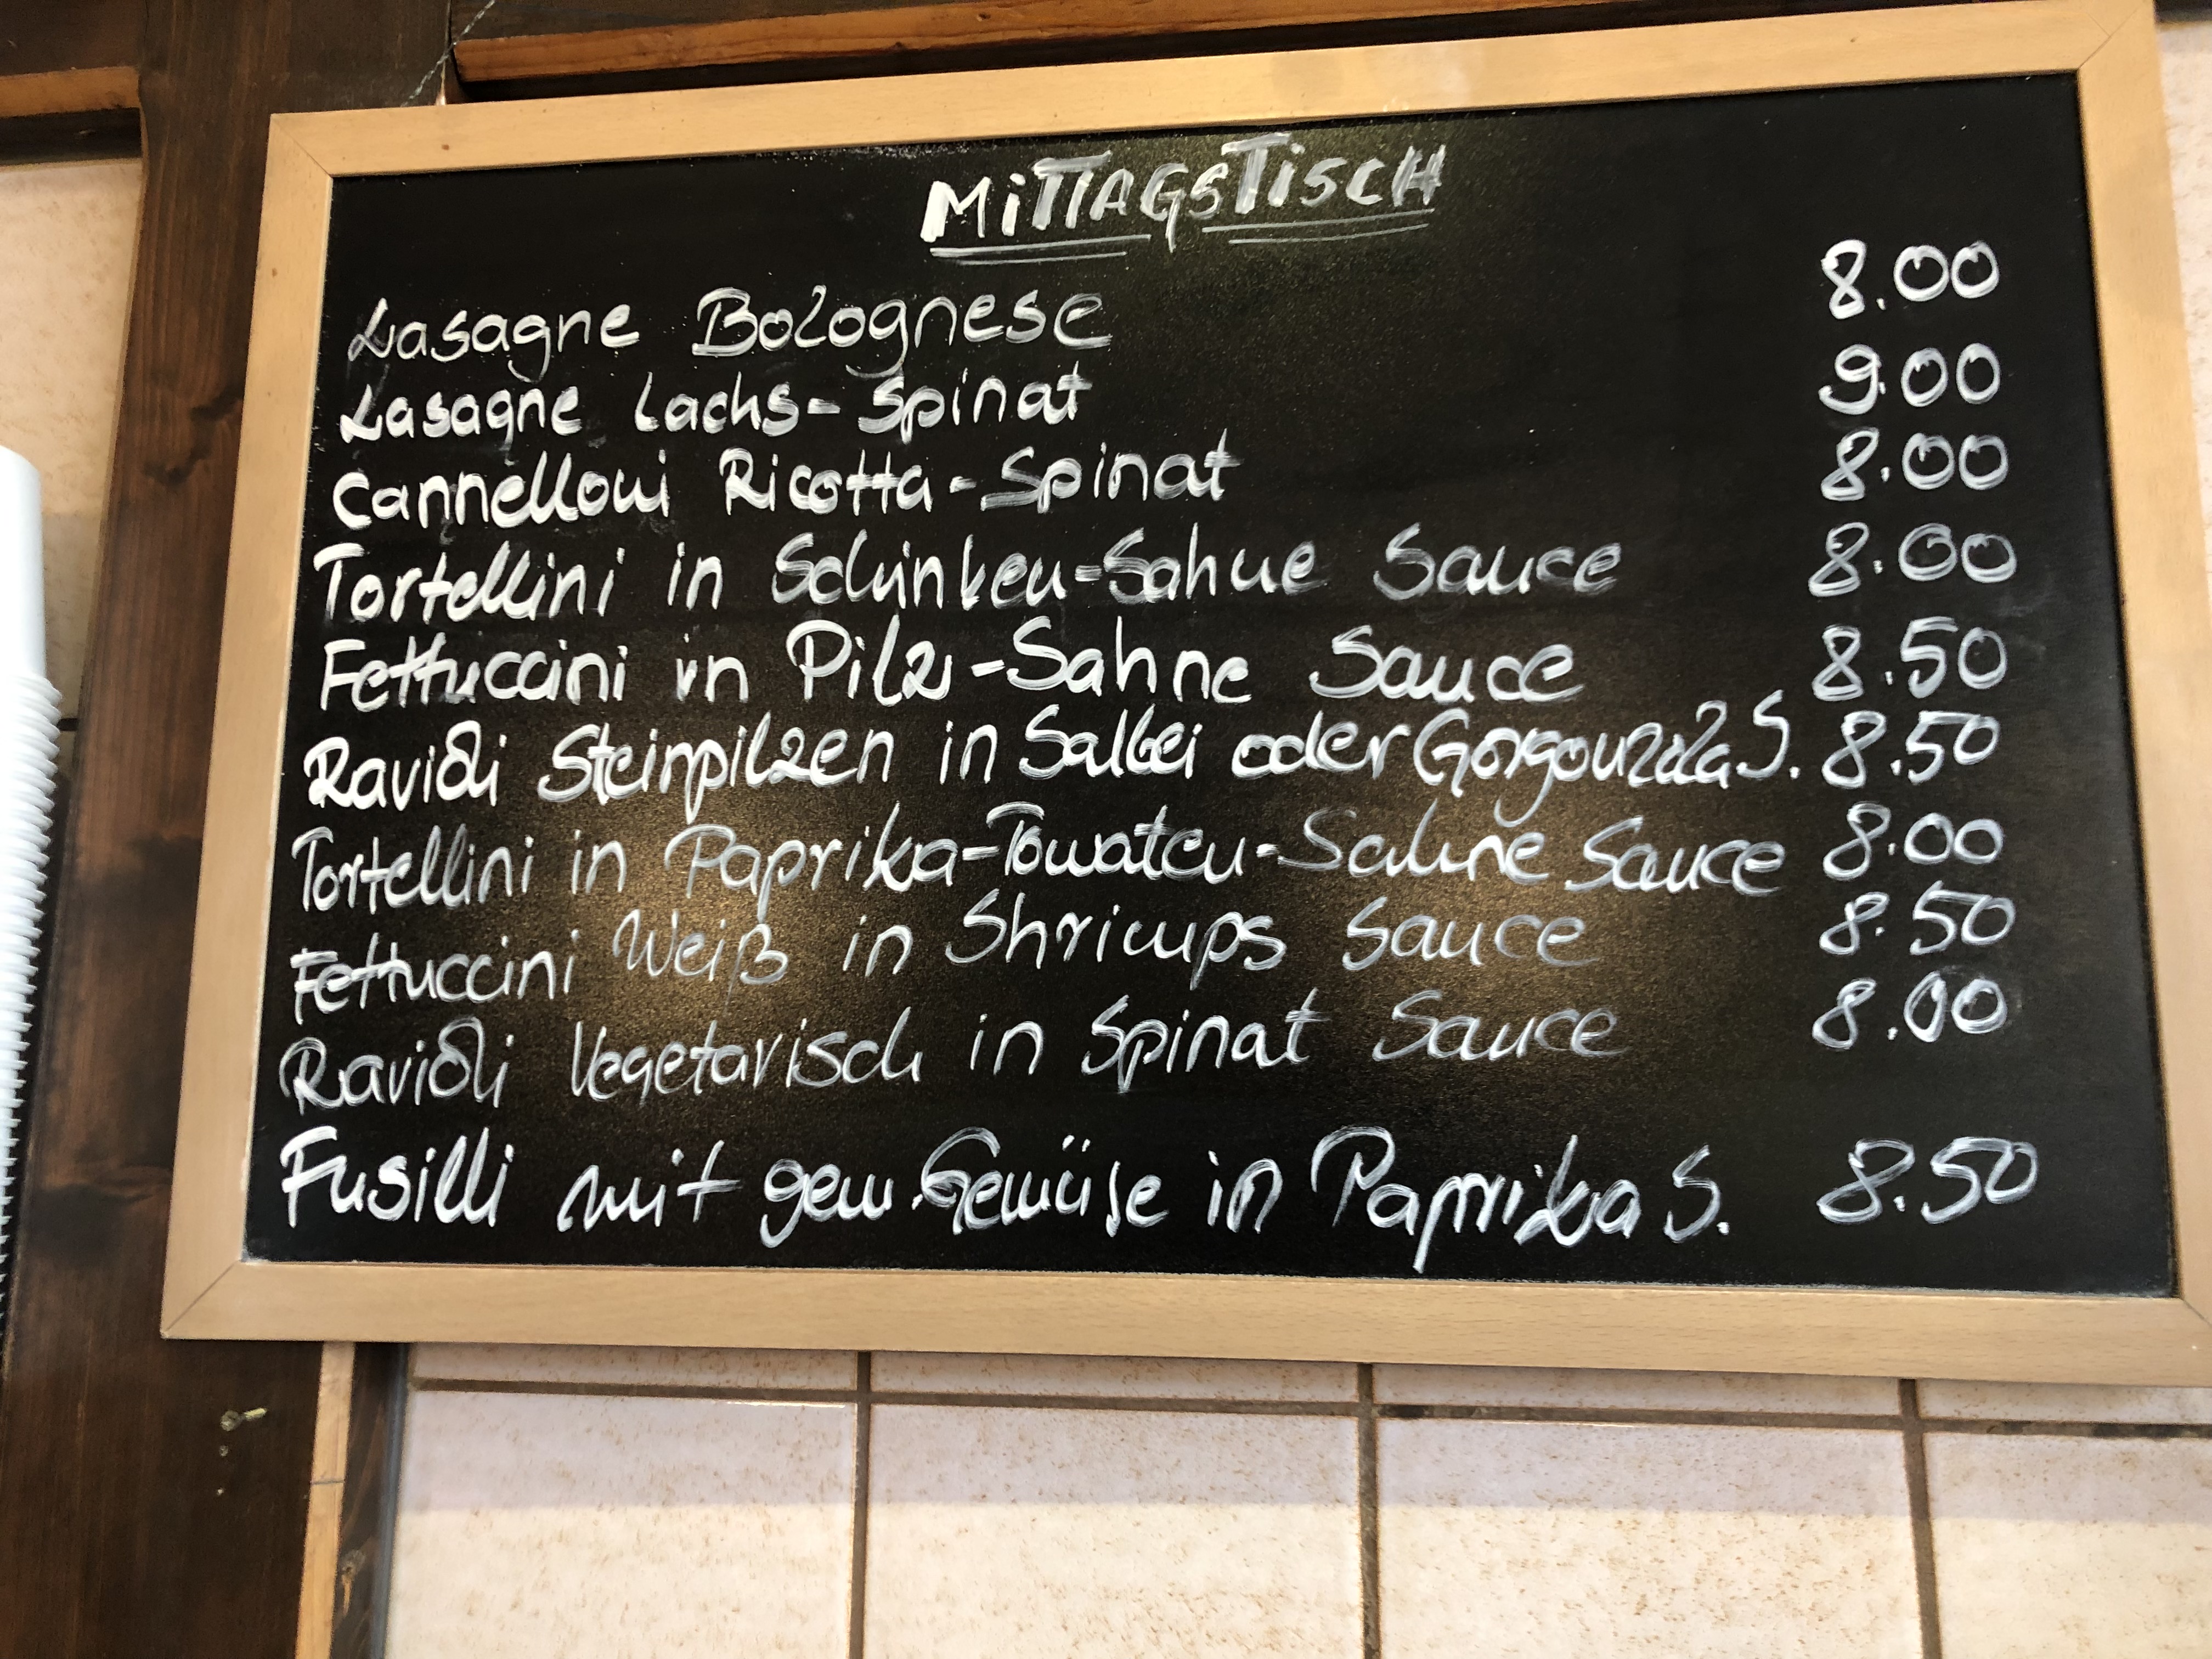 MiTTAGSTiSCH
Lasagne Bolognese 8.00
Lasagne Lachs-Spinat 9.00
Cannelloni Ricotta-Spinat 8.00
Tortellini in Schinken-Sahne Sauce 8.00
Fettuccini in Pilz-Sahne Sauce 8.50
Ravioli Steinpilzen in Salbei oder Gorgonzola S. 8.50
Tortellini in Paprika-Tomaten-Sahne Sauce 8.00
Fettuccini Weiß in Shrimps Sauce 8.50
Ravioli Vegetarisch in Spinat Sauce 8.00
Fusilli mit gem. Gemüse in Paprika S. 8.50